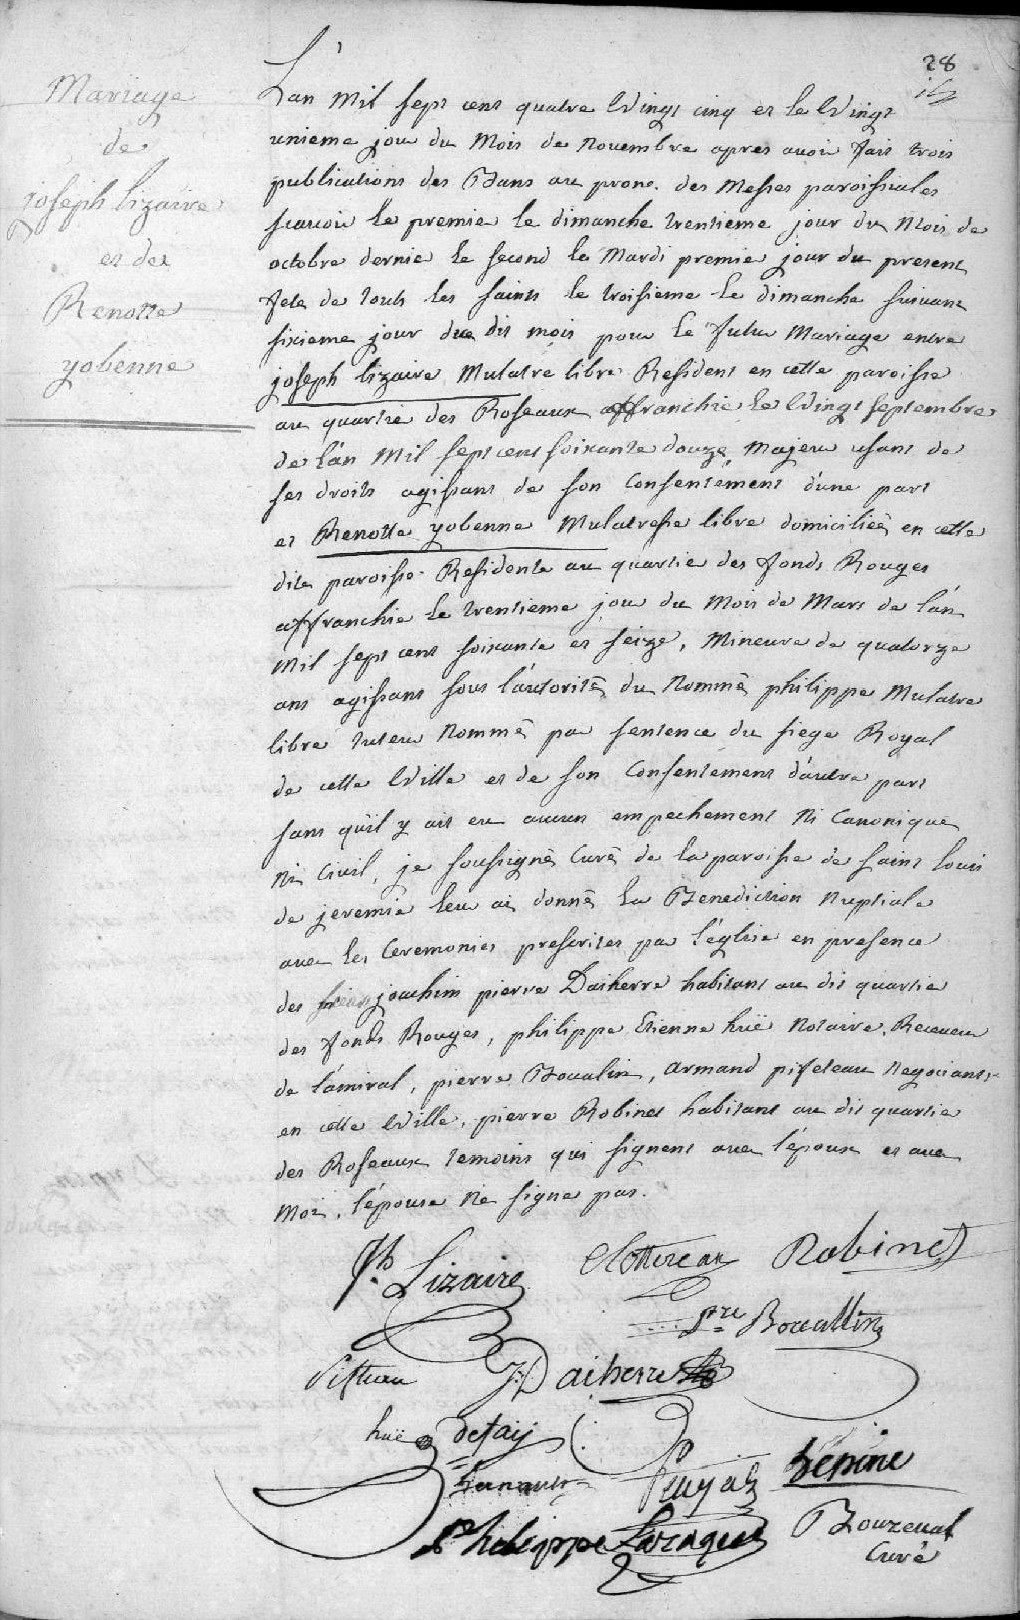 28
Mariage
de
joseph lizaire
et de
Renotte
yobenne
L'an Mil sept cens quatre Vingt cinq et le Vingt
unieme jour du Mois de Novembre apres avoir fait trois
publications des Bans au prone des Messes paroissiales
scavoir le premie le dimanche trentieme jour du Mois de
octobre dernie le second le Mardi premie jour du present
fete de touts les saints le troisieme le dimanche suivant
sixieme jour du dit mois pour le futur Mariage entre
joseph lizaire Mulatre libre Resident en cette paroisse
au quartie des Roseaux affranchie le Vingt septembre
de l'an Mil sept cens soixante douze, Majeur usant de
ses droits agissant de son Consentement d'une part
et Renotte yobenne Mulatresse libre domiciliée en cette
dite paroisse Residente au quartie des fonds Rouges
affranchie le trentieme jour du Mois de Mars de l'an
Mil sept cens soixante et seize, Mineure de quatorze
ans agissant sous l'autorité du Nommé philippe Mulatre
libre tuteur Nommé par sentence du siege Royal
de cette Ville et de son Consentement d'autre part
sans qu'il y ait eu aucun empechement Ni Canonique
Ni Civil, je soussigné Curé de la paroisse de saint louis
de jeremie leur ai donné la Benediction Nuptiale
avec les Ceremonies prescrites par l'église en presence
des joachim pierre Daiherre habitant au dit quartie
des fonds Rouges, philippe Etienne huë Notaire, Receveur
de l'amiral, pierre Boualin, armand pifeteau Negociants
en cette Ville, pierre Robinet habitant au dit quartie
des Roseaux temoins qui signent avec l'époux et avec
Moi, l'épouse Ne signe pas.
Jh. Lizaire Clottereau Robinet
Pre Bouallin
Pifteau J: Daiherre
huë defay
Puyol Lépine
Philippe Lazague Bourzenat
Curé